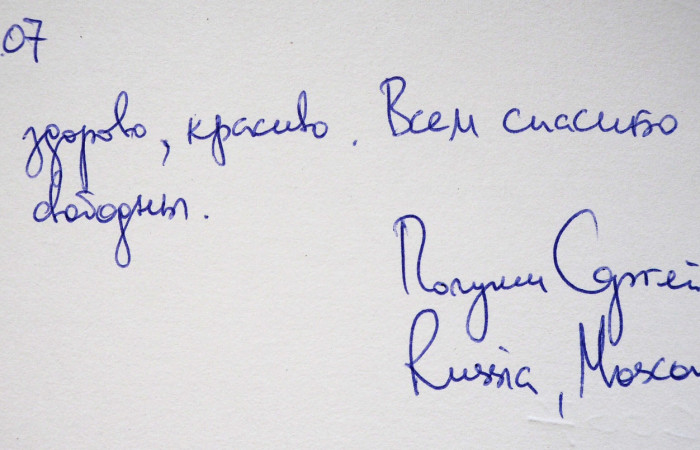 07
здорово, красиво. Всем спасибо
свободны.
Сергей
Russia, Moscow